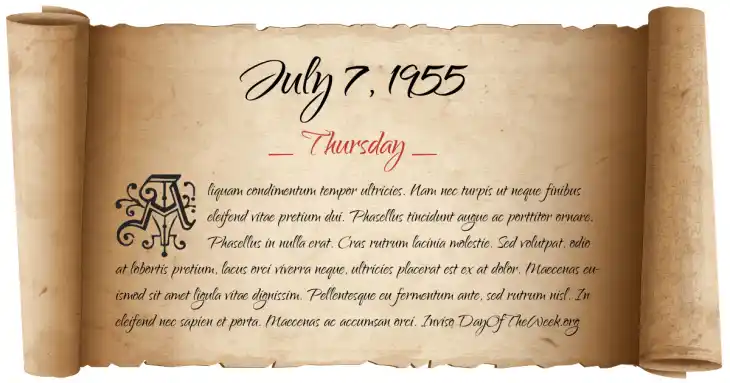 July 7, 1955
Thursday
Aliquam condimentum tempor ultricies. Nam nec turpis ut neque finibus
eleifend vitae pretium dui. Phasellus tincidunt augue ac porttitor ornare.
Phasellus in nulla erat. Cras rutrum lacinia molestie. Sed volutpat, odio
at lobortis pretium, lacus orci viverra neque, ultricies placerat est ex at dolor. Maecenas eu-
ismod sit amet ligula vitae dignissim. Pellentesque eu fermentum ante, sed rutrum nisl. In
eleifend nec sapien et porta. Maecenas ac accumsan orci. Inviso DayOfTheWeek.org